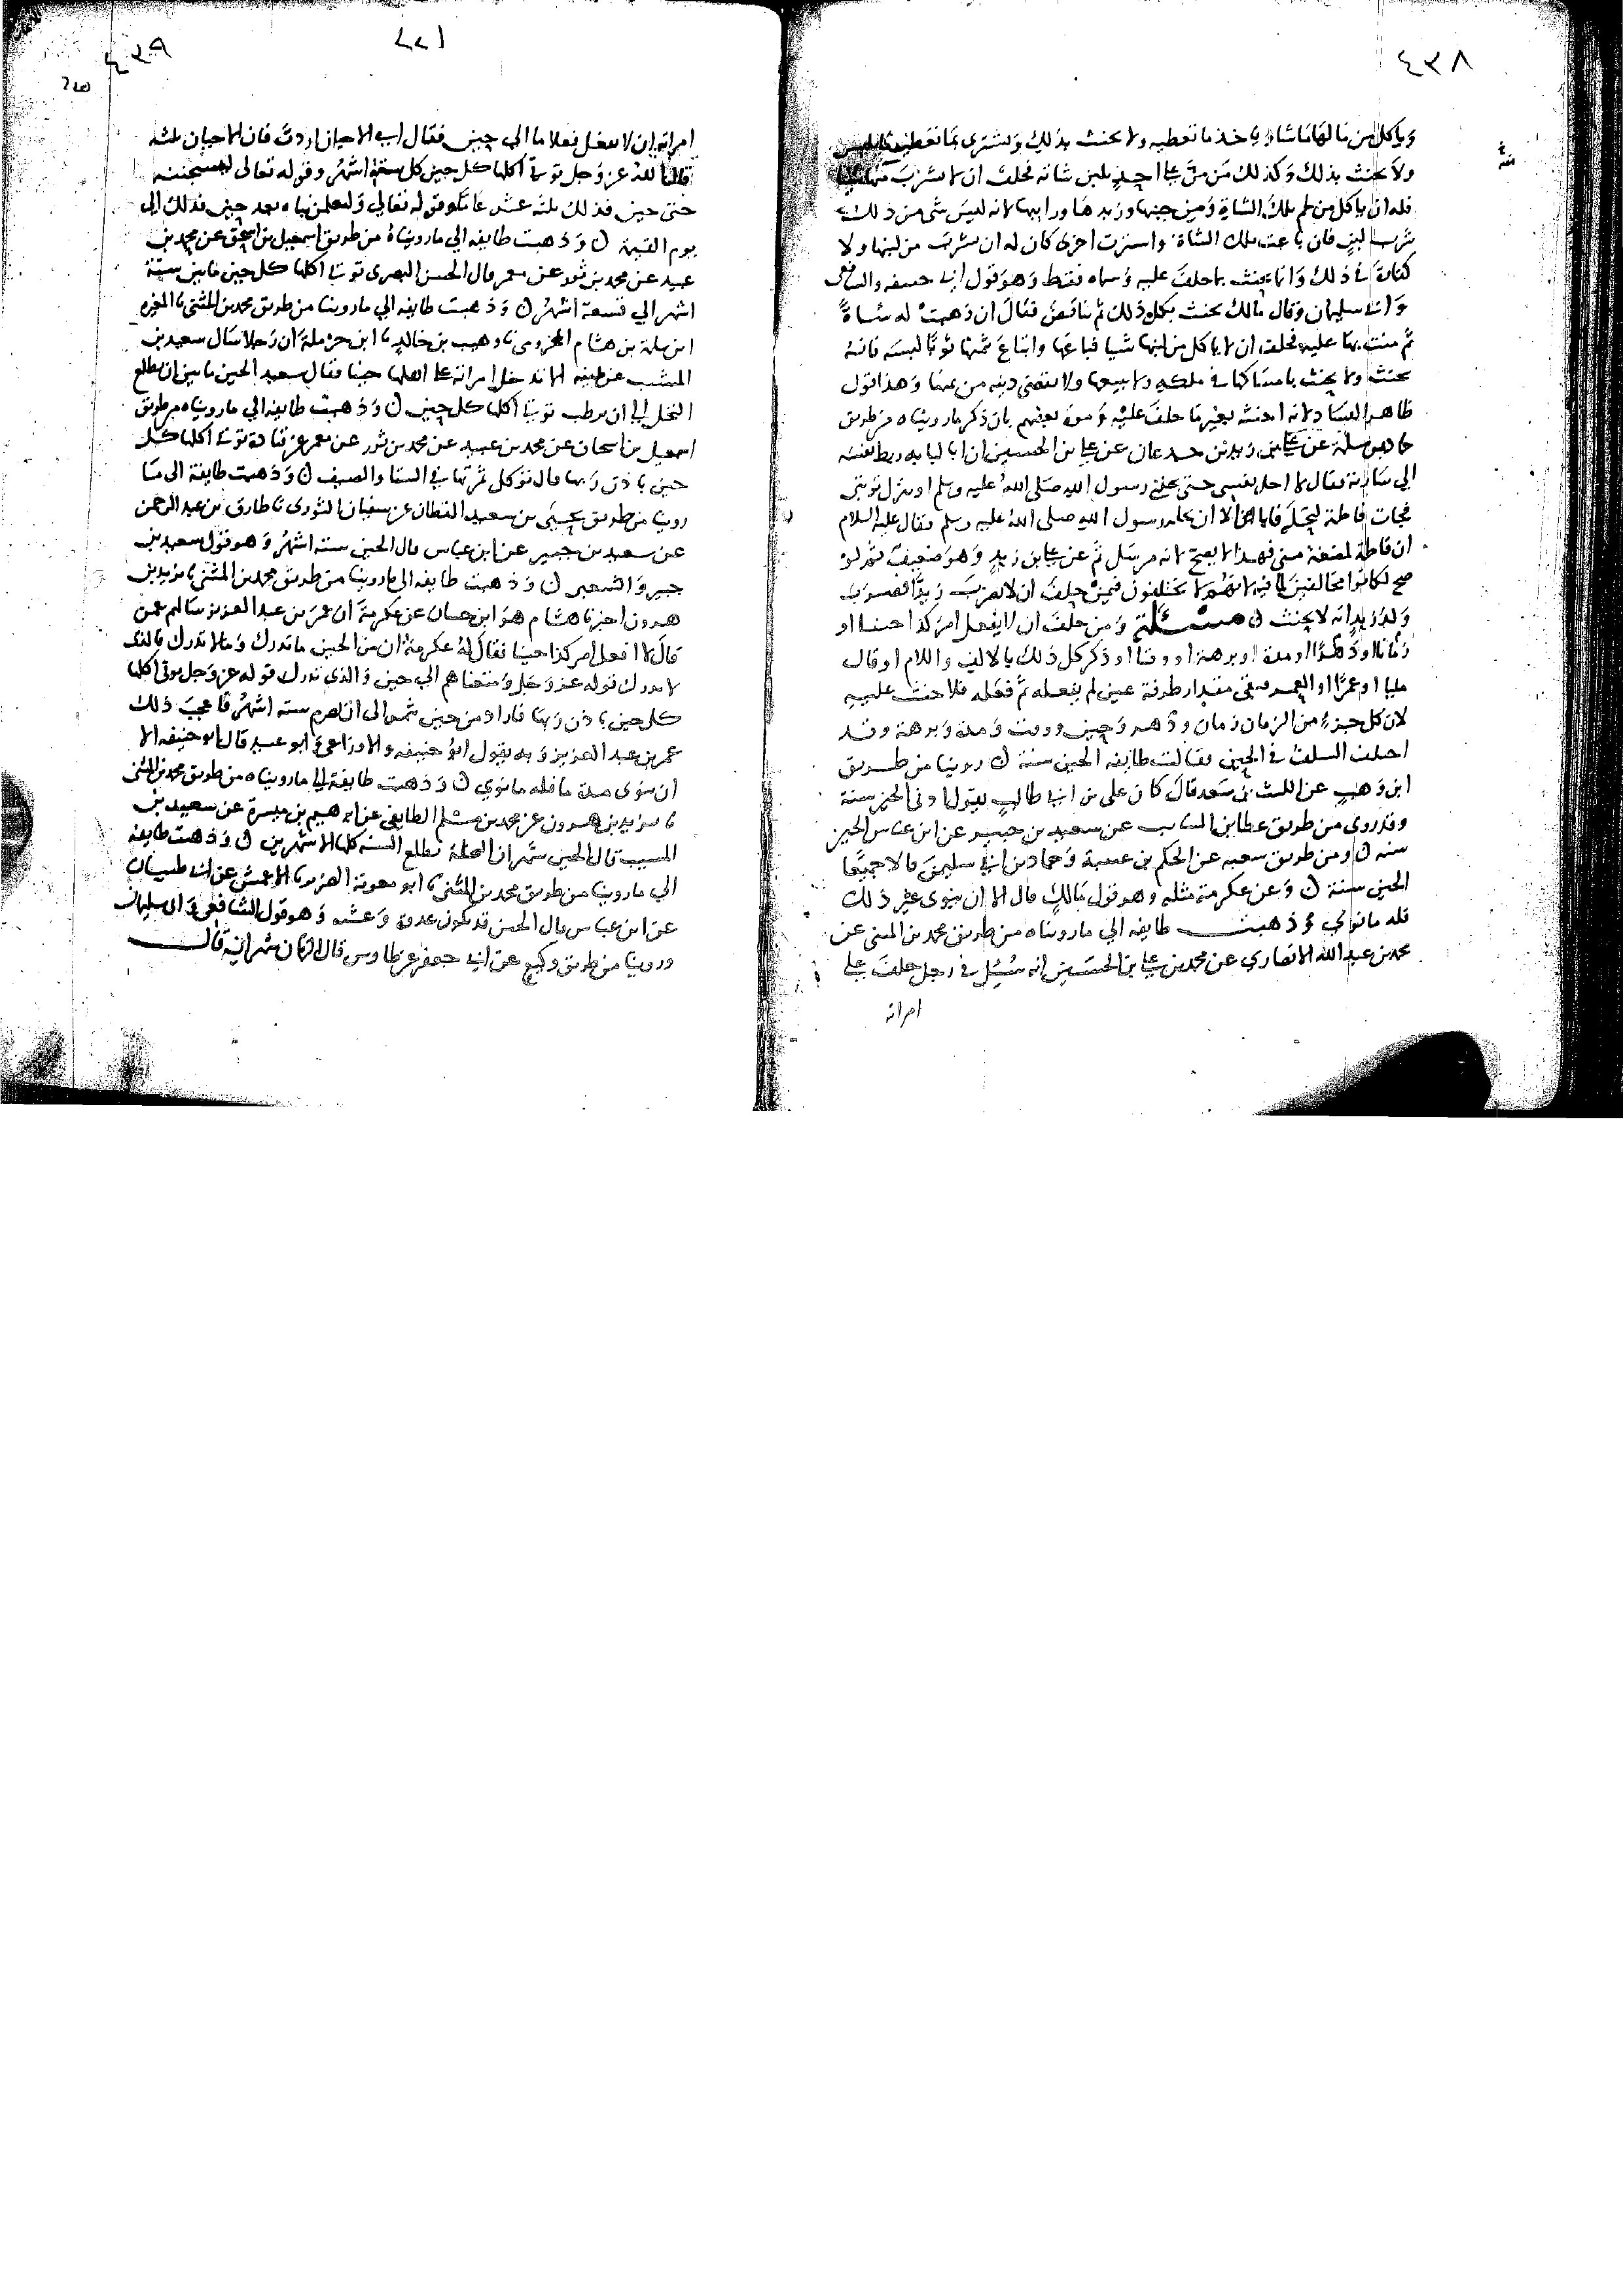 ٤٣٨
وياكل من مالها ما شاء وياخذ ما تعطيه ولا يحنث بذلك ويشتري بما تعطيه
ولا يحنث بذلك وكذلك من من على احد بلبن شاته فحلف ان لا يشرب منها شيا
فله ان ياكل من لحم تلك الشاة ومن جبنها وزبدها ورائبها لانه ليس شي من ذلك
شرب لبن فان باعت تلك الشاة واشترت اخرى كان له ان يشرب من لبنها ولا
كفارة في ذلك وانما يحنث بما حلف عليه وسماه فقط وهو قول ابي حنيفه والشافعي
وابي سليمان وقال مالك يحنث بكل ذلك ثم تناقض فقال ان وهبت له شاة
ثم منت بها عليه فحلف ان لا ياكل من لبنها شيا فباعها وابتاع بثمنها ثوبا لبسه فانه
يحنث ولا يحنث بامساكها في ملكه ولا ببيعها ولا بقضي دينه من ثمنها وهذا قول
ظاهر الفساد لانه احنثه بغير ما حلف عليه وموه بعضهم بان ذكر ما رويناه من طريق
حماد بن سلمة عن علي بن زيد بن جدعان عن علي بن الحسين ان ابا لبابه ربط نفسه
الى سارية فقال لا احل نفسي حتى يحلني رسول الله صلى الله عليه وسلم او ينزل توبتي
فجات فاطمة لتحله فابا الا ان يحله رسول الله صلى الله عليه وسلم فقال عليه السلام
ان فاطمة لمضغة مني فهذا لا يصح لانه مرسل ثم عن علي بن زيد وهو ضعيف ثم لو
صح لكانوا مخالفين لما فيه لانهم لا يختلفون فيمن حلف ان لا يضرب زيدا فضرب
ولد زيد انه لا يحنث ن مسئلة ومن حلف ان لا يفعل امر كذا حينا او
زمانا او دهرا او مدة او برهة او وقتا او ذكر كل ذلك بالالف واللام او قال
مليا او عمرا او العمر فبقي مقدار طرفة عين لم يفعله ثم فعله فلا حنث عليه
لان كل جزء من الزمان زمان ودهر وحين ووقت ومدة وبرهة وقد
اختلف السلف في الحين فقالت طايفه الحين سنة ن روينا من طريق
ابن وهب عن الليث بن سعد قال كان علي بن ابي طالب يقول ارى الحين سنة
وقد روى من طريق عطا بن السايب عن سعيد بن جبير عن ابن عباس الحين
سنه ن ومن طريق شعبه عن الحكم بن عتيبة وحماد بن ابي سليمن قالا جميعا
الحين سنة ن وعن عكرمة مثله وهو قول مالك قال الا ان ينوي غير ذلك
فله ما نوى وذهبت طايفه الى ما رويناه من طريق محمد بن المثنى عن
محمد بن عبد الله الانصاري عن محمد بن علي بن الحسين انه سئل في رجل حلف على
امراته
٤٣٩
٢٢١
امراته ان لا تفعل فعلا ما الى حين فقال اي الاحيان اردت فان الاحيان ثلثه
قال الله عز وجل توتي اكلها كل حين كل ستة اشهر وقوله تعالى ليسجننه
حتى حين فذلك ثلثه عشر عاما وقوله تعالى ولتعلمن نباه بعد حين فذلك الى
يوم القيمة ن وذهبت طايفه الى ما رويناه من طريق اسمعيل بن اسحق عن محمد بن
عبيد عن محمد بن ثور عن معمر قال الحسن البصري توتي اكلها كل حين ما بين ستة
اشهر الى تسعة اشهر ن وذهبت طايفه الى ما روينا من طريق محمد بن المثنى نا المغيره
ابن سلمة بن هشام المخزومي نا وهيب بن خالد نا ابن حرملة ان رجلا سال سعيد بن
المسيب عن يمينه الا تدخل امراته على اهلها حينا فقال سعيد الحين ما بين ان يطلع
النخل الى ان يرطب توتي اكلها كل حين ن وذهبت طايفه الى ما رويناه من طريق
اسمعيل بن اسحاق عن محمد بن عبيد عن محمد بن ثور عن معمر عن قتادة توتي اكلها كل
حين باذن ربها قال توكل ثمرتها في الشتا والصيف ن وذهبت طايفة الى ما
روينا من طريق يحيى بن سعيد القطان عن سفيان الثوري نا طارق بن عبد الرحمن
عن سعيد بن جبير عن ابن عباس قال الحين ستة اشهر وهو قول سعيد بن
جبير والشعبي ن وذهبت طايفه الى ما روينا من طريق محمد بن المثنى نا يزيد بن
هرون اخبرنا هشام هو ابن حسان عن عكرمة ان عمر بن عبد العزيز ساله عمن
قال لا افعل امر كذا حينا فقال له عكرمة ان من الحين ما تدرك وما لا تدرك فالذي
لا يدرك قوله عز وجل ومتعناهم الى حين والذي تدرك قوله عز وجل توتي اكلها
كل حين باذن ربها فاراد من حين تثمر الى ان تصرم سته اشهر فاعجب ذلك
عمر بن عبد العزيز وبه يقول ابو حنيفه والاوزاعي وابو عبيد قال ابو حنيفه الا
ان نوى مدة ما فله ما نوي ن وذهبت طايفة الى ما رويناه من طريق محمد بن المثنى
نا يزيد بن هرون عن محمد بن مسلم الطايفي عن ابرهيم بن ميسرة عن سعيد بن
المسيب قال الحين شهران النخلة تطلع السنه كلها الا شهرين ن وذهبت طايفه
الى ما روينا من طريق محمد بن المثنى نا ابو معوية الضرير نا الاعمش عن ابي ظبيان
عن ابن عباس قال الحين قد يكون غدوة وعشيه وهو قول الشافعي وابي سليمان
وروينا من طريق وكيع عن ابي جعفر عن طاوس قال الزمان شهران قال